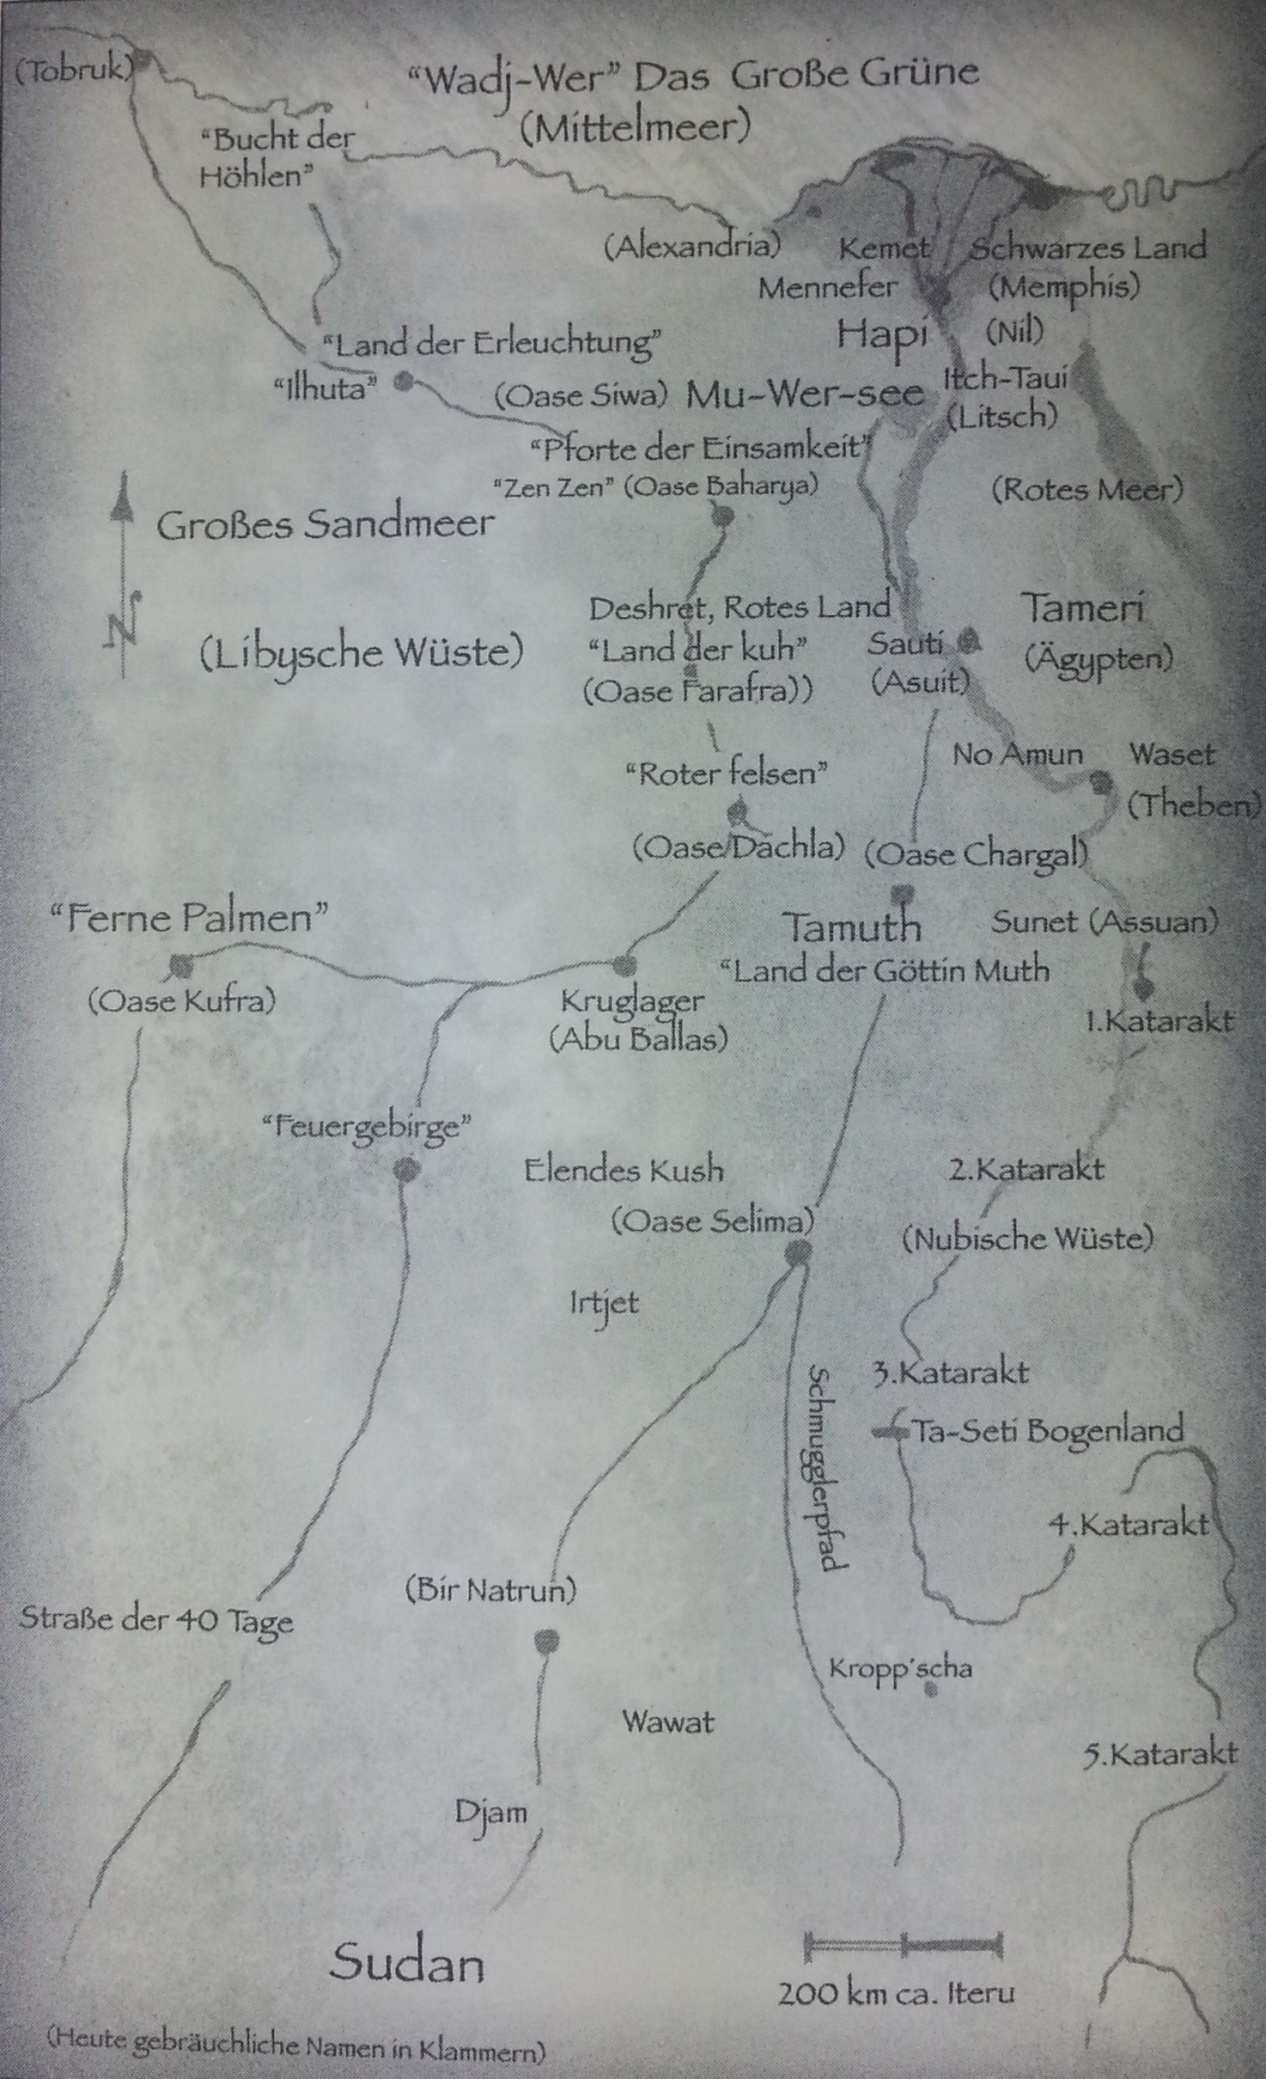 (Tobruk)
"Wadj-Wer" Das Große Grüne
(Mittelmeer)
"Bucht der
Höhlen"
(Alexandria)
Kemet
Schwarzes Land
Mennefer
(Memphis)
Hapi
(Nil)
"Land der Erleuchtung"
"Ilhuta"
(Oase Siwa)
Mu-Wer-see
Itch-Taui
(Litsch)
"Pforte der Einsamkeit"
"Zen Zen" (Oase Baharya)
(Rotes Meer)
Großes Sandmeer
N
(Libysche Wüste)
Deshret, Rotes Land
"Land der kuh"
(Oase Farafra))
Sauti
(Asuit)
Tameri
(Ägypten)
No Amun
Waset
(Theben)
"Roter felsen"
(Oase Dachla)
(Oase Chargal)
"Ferne Palmen"
(Oase Kufra)
Tamuth
"Land der Göttin Muth
Sunet (Assuan)
1.Katarakt
Kruglager
(Abu Ballas)
"Feuergebirge"
Elendes Kush
(Oase Selima)
2.Katarakt
(Nubische Wüste)
Irtjet
Schmugglerpfad
3.Katarakt
Ta-Seti Bogenland
4.Katarakt
(Bir Natrun)
Straße der 40 Tage
Kropp'scha
Wawat
5.Katarakt
Djam
Sudan
200 km ca. Iteru
(Heute gebräuchliche Namen in Klammern)